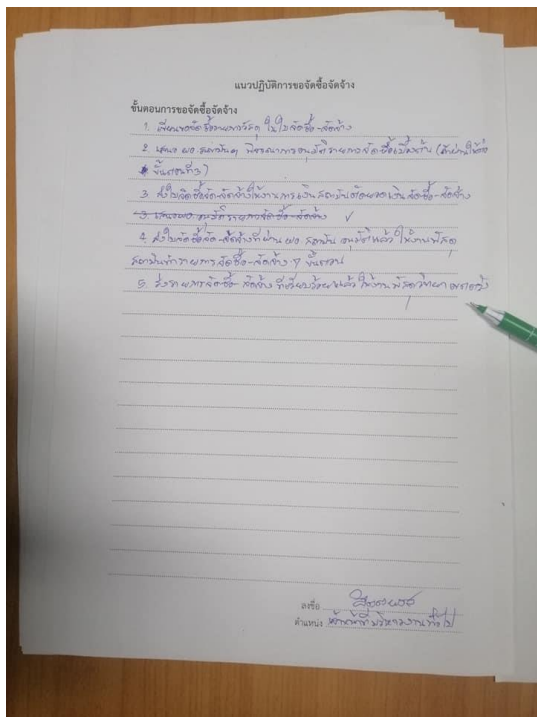 แนวปฏิบัติการขอจัดซื้อจัดจ้าง
ขั้นตอนการขอจัดซื้อจัดจ้าง
1. เขียนขอจัดซื้อรายการวัสดุ ในใบจัดซื้อ-จัดจ้าง
2. เสนอ ผอ. สถาบันฯ พิจารณาการอนุมัติรายการจัดซื้อเบื้องต้น
ขั้นตอนที่ 3)
3. ส่งใบจัดซื้อจัด-จัดจ้างให้งานการเงินสถาบันตัดยอดเงินจัดซื้อ-จัดจ้าง
3. เสนอ ผอ อนุมัติรายการจัดซื้อ-จัดจ้าง ✓
4. ส่งใบจัดซื้อจัด-จัดจ้างที่ผ่าน ผอ สถาบัน อนุมัติแล้ว ให้งานพัสดุ
สถาบันทำรายการจัดซื้อ-จัดจ้าง 7 ขั้นตอน
5. ส่งรายการจัดซื้อ-จัดจ้าง ที่เรียบร้อยแล้ว ให้งานพัสดุวิทยา
ลงชื่อ
ตำแหน่ง หัวหน้าฝ่ายบริหารงานทั่วไป